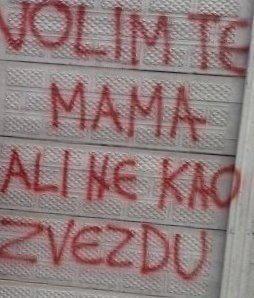 VOLIM TE
MAMA
ALI NE KAO
ZVEZDU